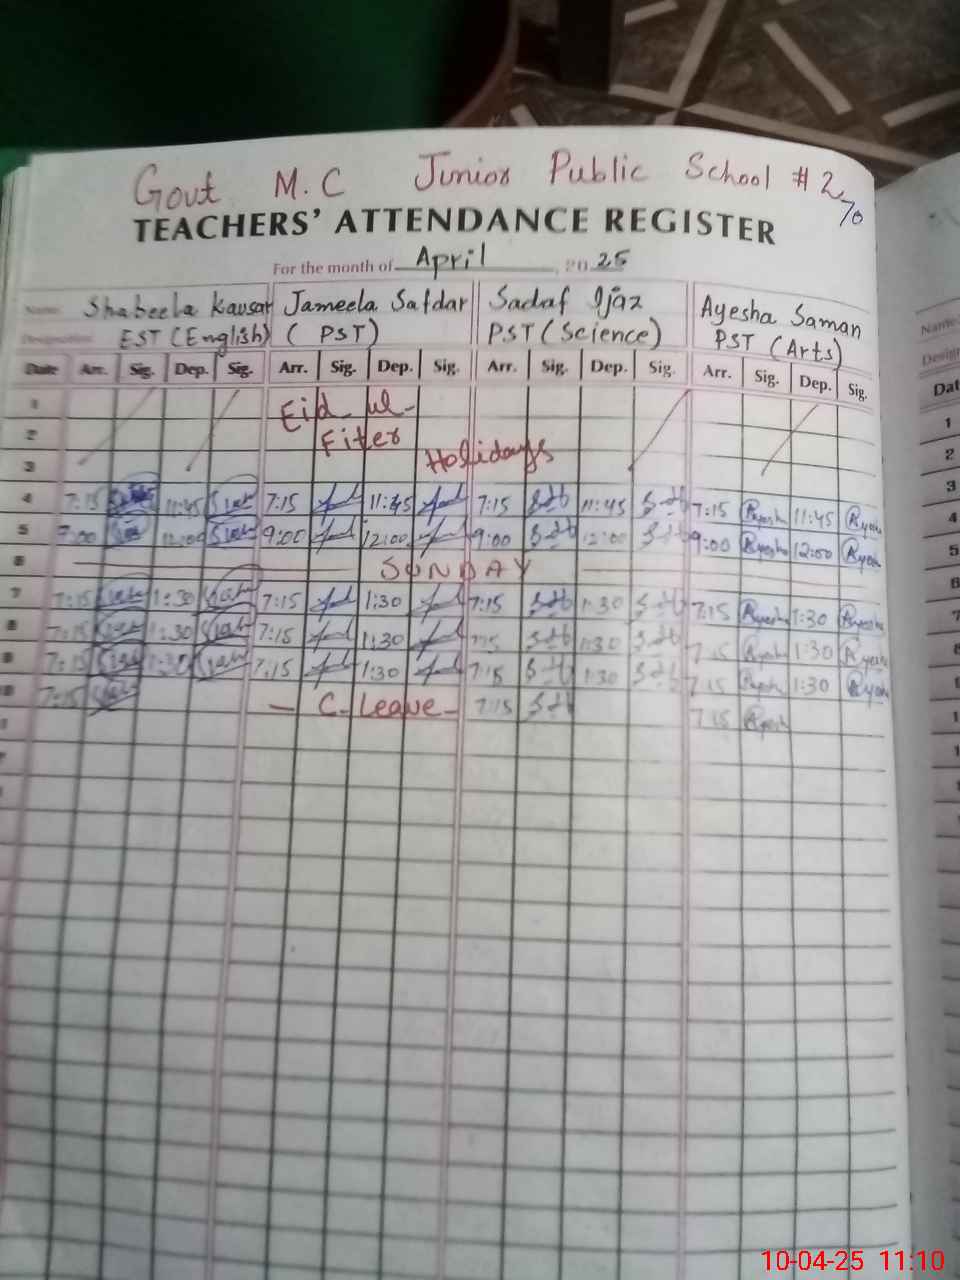 Govt M.C Junior Public School # 2
70
TEACHERS' ATTENDANCE REGISTER
For the month of April, 2025
Name: Shabeela Kausar Jameela Safdar Sadaf Ijaz Ayesha Saman
Designation: EST (English) (PST) PST (Science) PST (Arts)
Date Arr. Sig. Dep. Sig. Arr. Sig. Dep. Sig. Arr. Sig. Dep. Sig. Arr. Sig. Dep. Sig.
1 Eid-ul-
2 Fiter
3 Holidays
4 7:15 11:45 7:15 11:45 7:15 11:45 7:15 Ayesha 11:45 Ayesha
5 9:00 12:00 9:00 12:00 9:00 12:00 9:00 Ayesha 12:00 Ayesha
6 SUNDAY
7 7:15 1:30 7:15 1:30 7:15 1:30 7:15 Ayesha 1:30 Ayesha
8 7:15 1:30 7:15 1:30 7:15 1:30 7:15 Ayesha 1:30 Ayesha
9 7:15 1:30 7:15 1:30 7:15 1:30 7:15 Ayesha 1:30 Ayesha
10 7:15 - C. Leave - 7:15 7:15 Ayesha
Name
Design
Dat
1
2
3
4
5
6
7
8
9
1
1
10-04-25 11:10